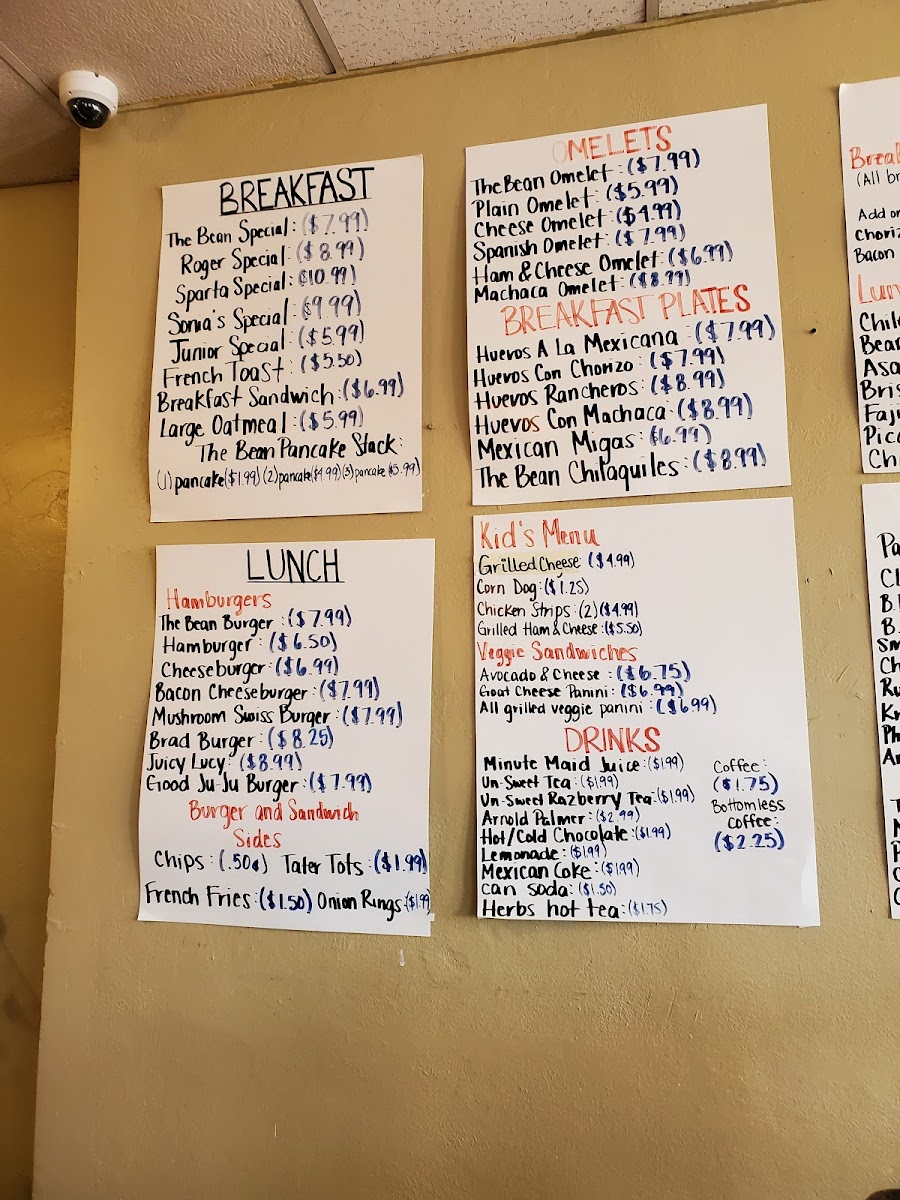 BREAKFAST
The Bean Special: ($7.99)
Roger Special: ($8.99)
Sparta Special: $10.99)
Sonia's Special: ($9.99)
Junior Special: ($5.99)
French Toast: ($5.50)
Breakfast Sandwich: ($6.99)
Large Oatmeal: ($5.99)
The Bean Pancake Stack:
(1) pancake($1.99) (2) pancake($4.99) (3) pancake($5.99)
OMELETS
The Bean Omelet: ($7.99)
Plain Omelet: ($5.99)
Cheese Omelet: ($4.99)
Spanish Omelet: ($7.99)
Ham & Cheese Omelet: ($6.99)
Machaca Omelet: ($8.99)
BREAKFAST PLATES
Huevos A La Mexicana: ($7.99)
Huevos Con Chorizo: ($7.99)
Huevos Rancheros: ($8.99)
Huevos Con Machaca: ($8.99)
Mexican Migas: $6.99)
The Bean Chilaquiles: ($8.99)
LUNCH
Hamburgers
The Bean Burger: ($7.99)
Hamburger: ($6.50)
Cheeseburger: ($6.99)
Bacon Cheeseburger: ($7.99)
Mushroom Swiss Burger: ($7.99)
Brad Burger: ($8.25)
Juicy Lucy: ($8.99)
Good Ju-Ju Burger: ($7.99)
Burger and Sandwich
Sides
Chips: (.50¢) Tater Tots: ($1.99)
French Fries: ($1.50) Onion Rings: ($1.99
Kid's Menu
Grilled Cheese: ($4.99)
Corn Dog: ($1.25)
Chicken Strips: (2) ($4.99)
Grilled Ham & Cheese: ($5.50)
Veggie Sandwiches
Avocado & Cheese: ($6.75)
Goat Cheese Panini: ($6.99)
All grilled veggie panini: ($6.99)
DRINKS
Minute Maid Juice: ($1.99)
Un-Sweet Tea: ($1.99)
Un-Sweet Razberry Tea: ($1.99)
Arnold Palmer: ($2.99)
Hot/Cold Chocolate: ($1.99)
Lemonade: ($1.99)
Mexican Coke: ($1.99)
can soda: ($1.50)
Herbs hot tea: ($1.75)
Coffee:
($1.75)
Bottomless
coffee:
($2.25)
(All br
Add or
Bacon